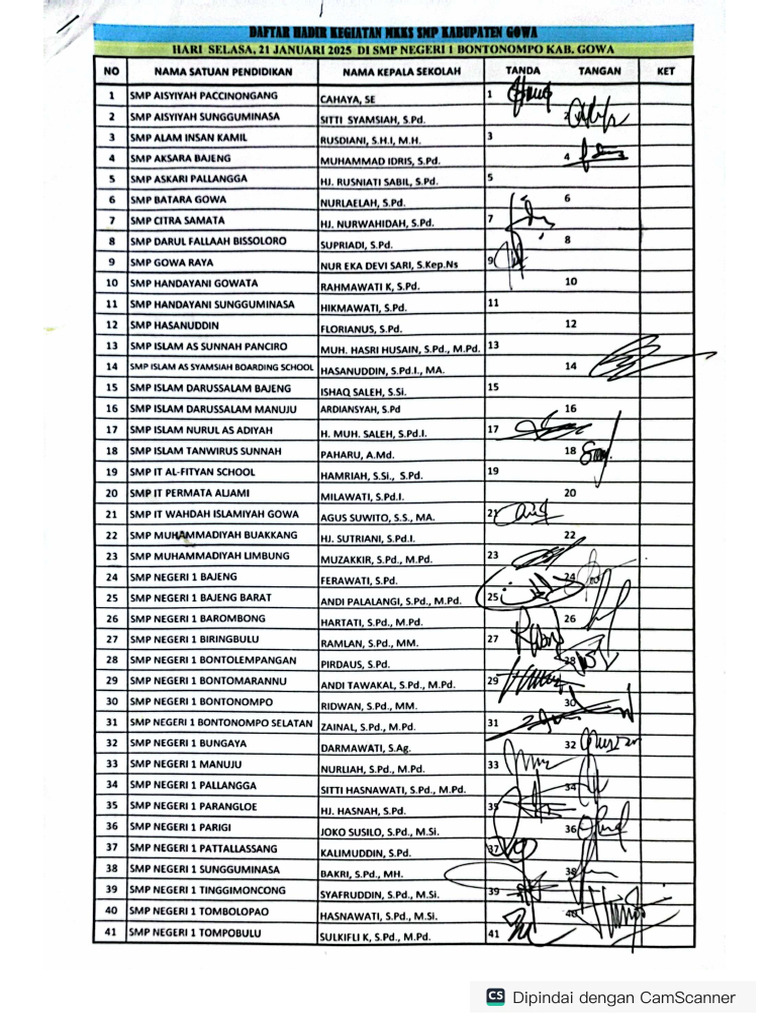 DAFTAR HADIR KEGIATAN MKKS SMP KABUPATEN GOWA
HARI SELASA, 21 JANUARI 2025 DI SMP NEGERI 1 BONTONOMPO KAB. GOWA
NO NAMA SATUAN PENDIDIKAN NAMA KEPALA SEKOLAH TANDA TANGAN KET
1 SMP AISYIYAH PACCINONGANG CAHAYA, SE 1
2 SMP AISYIYAH SUNGGUMINASA SITTI SYAMSIAH, S.Pd. 2
3 SMP ALAM INSAN KAMIL RUSDIANI, S.H.I, M.H. 3
4 SMP AKSARA BAJENG MUHAMMAD IDRIS, S.Pd. 4
5 SMP ASKARI PALLANGGA HJ. RUSNIATI SABIL, S.Pd. 5
6 SMP BATARA GOWA NURLAELAH, S.Pd. 6
7 SMP CITRA SAMATA HJ. NURWAHIDAH, S.Pd. 7
8 SMP DARUL FALLAAH BISSOLORO SUPRIADI, S.Pd. 8
9 SMP GOWA RAYA NUR EKA DEVI SARI, S.Kep.Ns 9
10 SMP HANDAYANI GOWATA RAHMAWATI K, S.Pd. 10
11 SMP HANDAYANI SUNGGUMINASA HIKMAWATI, S.Pd. 11
12 SMP HASANUDDIN FLORIANUS, S.Pd. 12
13 SMP ISLAM AS SUNNAH PANCIRO MUH. HASRI HUSAIN, S.Pd., M.Pd. 13
14 SMP ISLAM AS SYAMSIAH BOARDING SCHOOL HASANUDDIN, S.Pd.I., MA. 14
15 SMP ISLAM DARUSSALAM BAJENG ISHAQ SALEH, S.Si. 15
16 SMP ISLAM DARUSSALAM MANUJU ARDIANSYAH, S.Pd 16
17 SMP ISLAM NURUL AS ADIYAH H. MUH. SALEH, S.Pd.I. 17
18 SMP ISLAM TANWIRUS SUNNAH PAHARU, A.Md. 18
19 SMP IT AL-FITYAN SCHOOL HAMRIAH, S.Si., S.Pd. 19
20 SMP IT PERMATA ALJAMI MILAWATI, S.Pd.I. 20
21 SMP IT WAHDAH ISLAMIYAH GOWA AGUS SUWITO, S.S., MA. 21
22 SMP MUHAMMADIYAH BUAKKANG HJ. SUTRIANI, S.Pd.I. 22
23 SMP MUHAMMADIYAH LIMBUNG MUZAKKIR, S.Pd., M.Pd. 23
24 SMP NEGERI 1 BAJENG FERAWATI, S.Pd. 24
25 SMP NEGERI 1 BAJENG BARAT ANDI PALALANGI, S.Pd., M.Pd. 25
26 SMP NEGERI 1 BAROMBONG HARTATI, S.Pd., M.Pd. 26
27 SMP NEGERI 1 BIRINGBULU RAMLAN, S.Pd., MM. 27
28 SMP NEGERI 1 BONTOLEMPANGAN PIRDAUS, S.Pd. 28
29 SMP NEGERI 1 BONTOMARANNU ANDI TAWAKAL, S.Pd., M.Pd. 29
30 SMP NEGERI 1 BONTONOMPO RIDWAN, S.Pd., MM. 30
31 SMP NEGERI 1 BONTONOMPO SELATAN ZAINAL, S.Pd., M.Pd. 31
32 SMP NEGERI 1 BUNGAYA DARMAWATI, S.Ag. 32
33 SMP NEGERI 1 MANUJU NURLIAH, S.Pd., M.Pd. 33
34 SMP NEGERI 1 PALLANGGA SITTI HASNAWATI, S.Pd., M.Pd. 34
35 SMP NEGERI 1 PARANGLOE HJ. HASNAH, S.Pd. 35
36 SMP NEGERI 1 PARIGI JOKO SUSILO, S.Pd., M.Si. 36
37 SMP NEGERI 1 PATTALLASSANG KALIMUDDIN, S.Pd. 37
38 SMP NEGERI 1 SUNGGUMINASA BAKRI, S.Pd., MH. 38
39 SMP NEGERI 1 TINGGIMONCONG SYAFRUDDIN, S.Pd., M.Si. 39
40 SMP NEGERI 1 TOMBOLOPAO HASNAWATI, S.Pd., M.Si. 40
41 SMP NEGERI 1 TOMPOBULU SULKIFLI K, S.Pd., M.Pd. 41
CS Dipindai dengan CamScanner